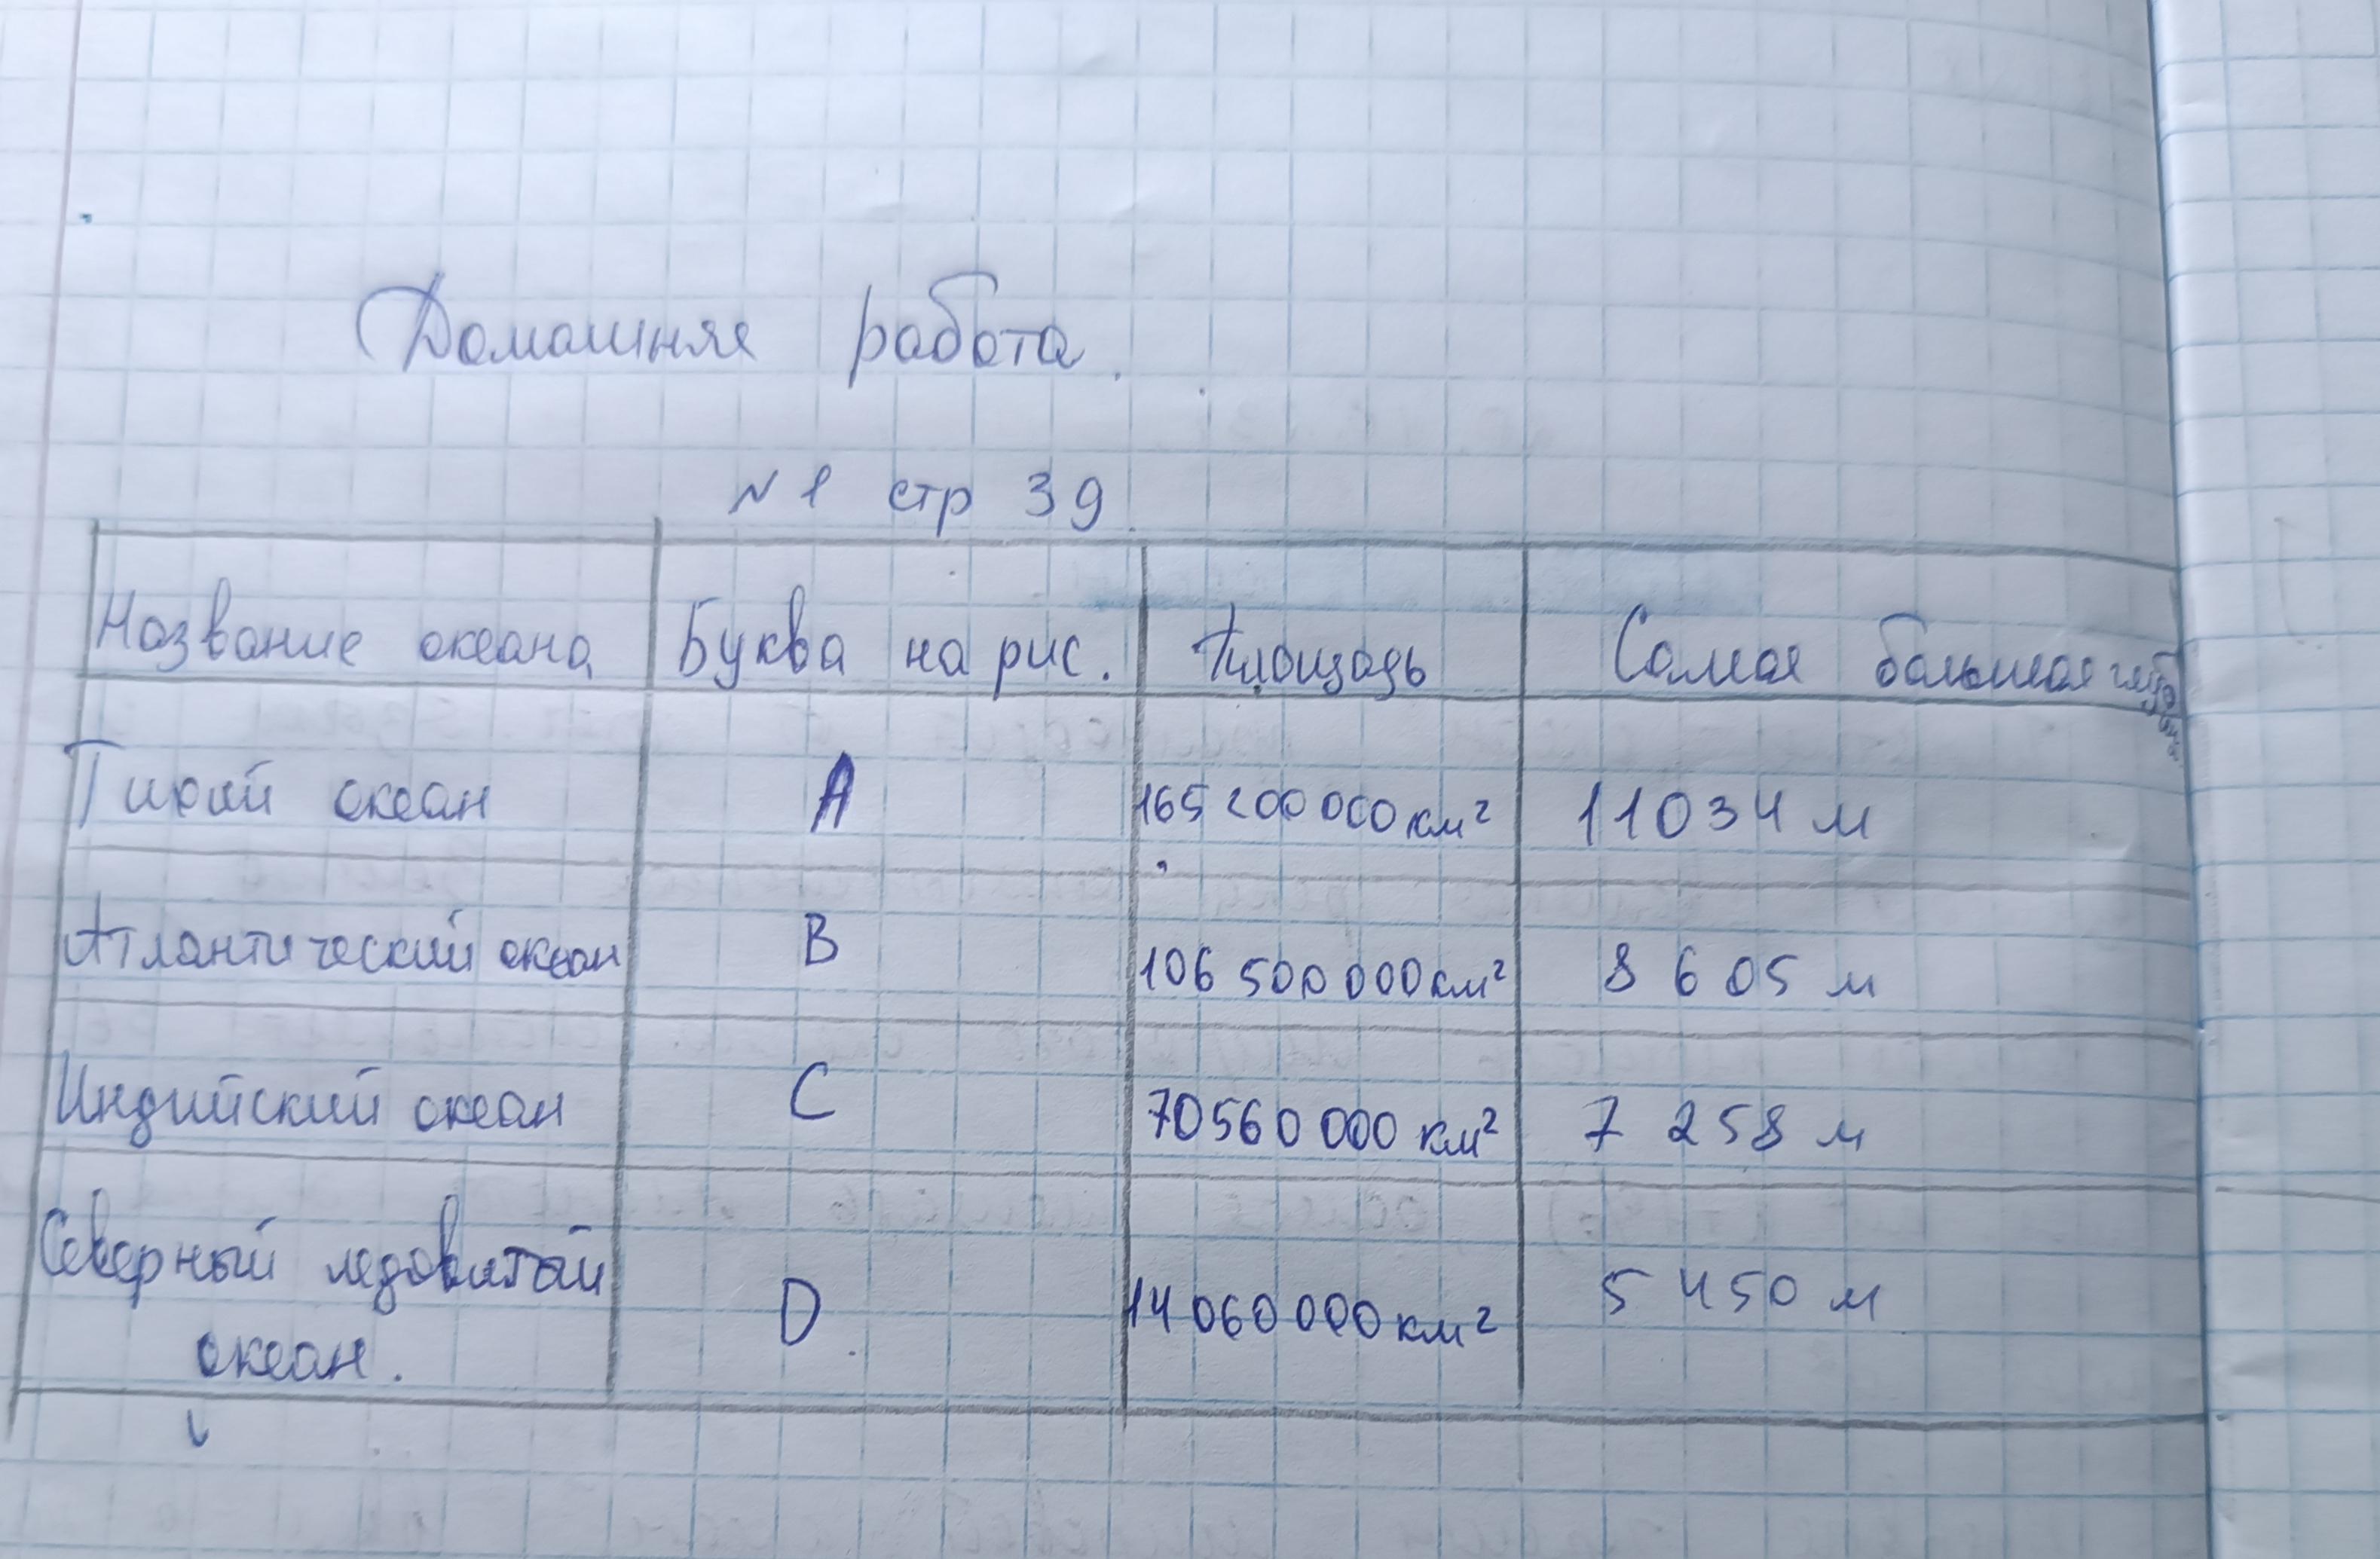 Домашняя работа.
№ 1 стр 39
Название океана Буква на рис. Площадь Самая большая глубина
Тихий океан A 165 200 000 км² 11034 м
Атлантический океан B 106 500 000 км² 8 605 м
Индийский океан C 70560 000 км² 7 258 м
Северный ледовитый D 14 060 000 км² 5 450 м
океан.